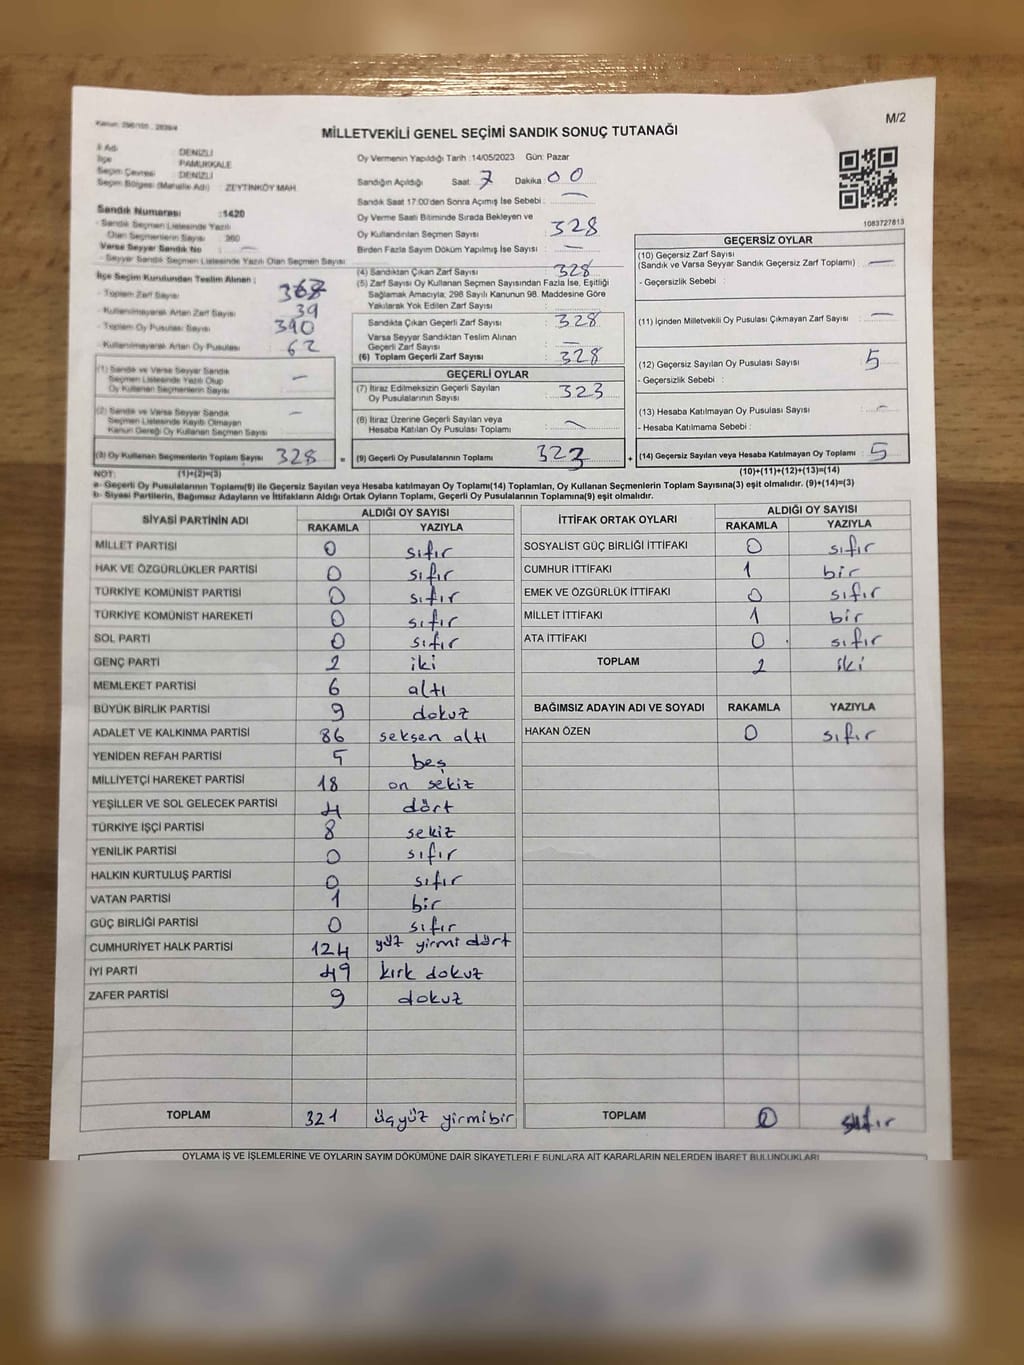 Kanun: 298/105 , 2839/4
M/2
MİLLETVEKİLİ GENEL SEÇİMİ SANDIK SONUÇ TUTANAĞI
İl Adı : DENİZLİ
İlçe : PAMUKKALE
Seçim Çevresi : DENİZLİ
Seçim Bölgesi (Mahalle Adı) : ZEYTİNKÖY MAH.
Sandık Numarası :1420
- Sandık Seçmen Listesinde Yazılı
Olan Seçmenlerin Sayısı : 360
Varsa Seyyar Sandık No : —
- Seyyar Sandık Seçmen Listesinde Yazılı Olan Seçmen Sayısı :
İlçe Seçim Kurulundan Teslim Alınan :
- Toplam Zarf Sayısı : 367
- Kullanılmayarak Artan Zarf Sayısı : 39
- Toplam Oy Pusulası Sayısı : 390
- Kullanılmayarak Artan Oy Pusulası : 62
(1) Sandık ve Varsa Seyyar Sandık
Seçmen Listesinde Yazılı Olup
Oy Kullanan Seçmenlerin Sayısı : —
(2) Sandık ve Varsa Seyyar Sandık
Seçmen Listesinde Kayıtlı Olmayan
Kanun Gereği Oy Kullanan Seçmen Sayısı : —
(3) Oy Kullanan Seçmenlerin Toplam Sayısı : 328 =
Oy Vermenin Yapıldığı Tarih :14/05/2023 Gün: Pazar
Sandığın Açıldığı Saat : 7 Dakika : 00
Sandık Saat 17:00'den Sonra Açımış İse Sebebi : —
Oy Verme Saati Bitiminde Sırada Bekleyen ve
Oy Kullandırılan Seçmen Sayısı : 328
Birden Fazla Sayım Döküm Yapılmış İse Sayısı : —
(4) Sandıktan Çıkan Zarf Sayısı : 328
(5) Zarf Sayısı Oy Kullanan Seçmen Sayısından Fazla İse, Eşitliği
Sağlamak Amacıyla; 298 Sayılı Kanunun 98. Maddesine Göre
Yakılarak Yok Edilen Zarf Sayısı :
Sandıkta Çıkan Geçerli Zarf Sayısı : 328
Varsa Seyyar Sandıktan Teslim Alınan
Geçerli Zarf Sayısı : —
(6) Toplam Geçerli Zarf Sayısı : 328
GEÇERLİ OYLAR
(7) İtiraz Edilmeksizin Geçerli Sayılan
Oy Pusulalarının Sayısı : 323
(8) İtiraz Üzerine Geçerli Sayılan veya
Hesaba Katılan Oy Pusulası Toplamı : —
(9) Geçerli Oy Pusulalarının Toplamı : 323 +
1083727813
GEÇERSİZ OYLAR
(10) Geçersiz Zarf Sayısı
(Sandık ve Varsa Seyyar Sandık Geçersiz Zarf Toplamı) : —
- Geçersizlik Sebebi :
(11) İçinden Milletvekili Oy Pusulası Çıkmayan Zarf Sayısı : —
(12) Geçersiz Sayılan Oy Pusulası Sayısı : 5
- Geçersizlik Sebebi :
(13) Hesaba Katılmayan Oy Pusulası Sayısı : —
- Hesaba Katılmama Sebebi :
(14) Geçersiz Sayılan veya Hesaba Katılmayan Oy Toplamı : 5
NOT: (1)+(2)=(3) (10)+(11)+(12)+(13)=(14)
a- Geçerli Oy Pusulalarının Toplamı(9) ile Geçersiz Sayılan veya Hesaba katılmayan Oy Toplamı(14) Toplamları, Oy Kullanan Seçmenlerin Toplam Sayısına(3) eşit olmalıdır. (9)+(14)=(3)
b- Siyasi Partilerin, Bağımsız Adayların ve İttifakların Aldığı Ortak Oyların Toplamı, Geçerli Oy Pusulalarının Toplamına(9) eşit olmalıdır.
SİYASİ PARTİNİN ADI ALDIĞI OY SAYISI
RAKAMLA YAZIYLA
MİLLET PARTİSİ 0 sıfır
HAK VE ÖZGÜRLÜKLER PARTİSİ 0 sıfır
TÜRKİYE KOMÜNİST PARTİSİ 0 sıfır
TÜRKİYE KOMÜNİST HAREKETİ 0 sıfır
SOL PARTİ 0 sıfır
GENÇ PARTİ 2 iki
MEMLEKET PARTİSİ 6 altı
BÜYÜK BİRLİK PARTİSİ 9 dokuz
ADALET VE KALKINMA PARTİSİ 86 seksen altı
YENİDEN REFAH PARTİSİ 5 beş
MİLLİYETÇİ HAREKET PARTİSİ 18 on sekiz
YEŞİLLER VE SOL GELECEK PARTİSİ 4 dört
TÜRKİYE İŞÇİ PARTİSİ 8 sekiz
YENİLİK PARTİSİ 0 sıfır
HALKIN KURTULUŞ PARTİSİ 0 sıfır
VATAN PARTİSİ 1 bir
GÜÇ BİRLİĞİ PARTİSİ 0 sıfır
CUMHURİYET HALK PARTİSİ 124 yüz yirmi dört
İYİ PARTİ 49 kırk dokuz
ZAFER PARTİSİ 9 dokuz
TOPLAM 321 üçyüz yirmibir
İTTİFAK ORTAK OYLARI ALDIĞI OY SAYISI
RAKAMLA YAZIYLA
SOSYALİST GÜÇ BİRLİĞİ İTTİFAKI 0 sıfır
CUMHUR İTTİFAKI 1 bir
EMEK VE ÖZGÜRLÜK İTTİFAKI 0 sıfır
MİLLET İTTİFAKI 1 bir
ATA İTTİFAKI 0 sıfır
TOPLAM 2 iki
BAĞIMSIZ ADAYIN ADI VE SOYADI RAKAMLA YAZIYLA
HAKAN ÖZEN 0 sıfır
TOPLAM 0 sıfır
OYLAMA İŞ VE İŞLEMLERİNE VE OYLARIN SAYIM DÖKÜMÜNE DAİR ŞİKAYETLERLE BUNLARA AİT KARARLARIN NELERDEN İBARET BULUNDUKLARI